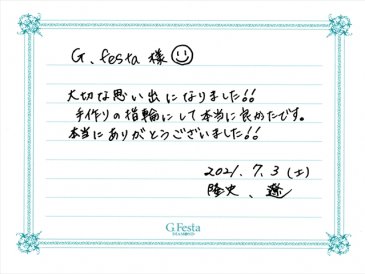 G.festa 様
大切な思い出になりました!!
手作りの指輪にして本当に良かったです。
本当にありがとうございました!!
2021. 7. 3 (土)
隆史、遥
G.Festa